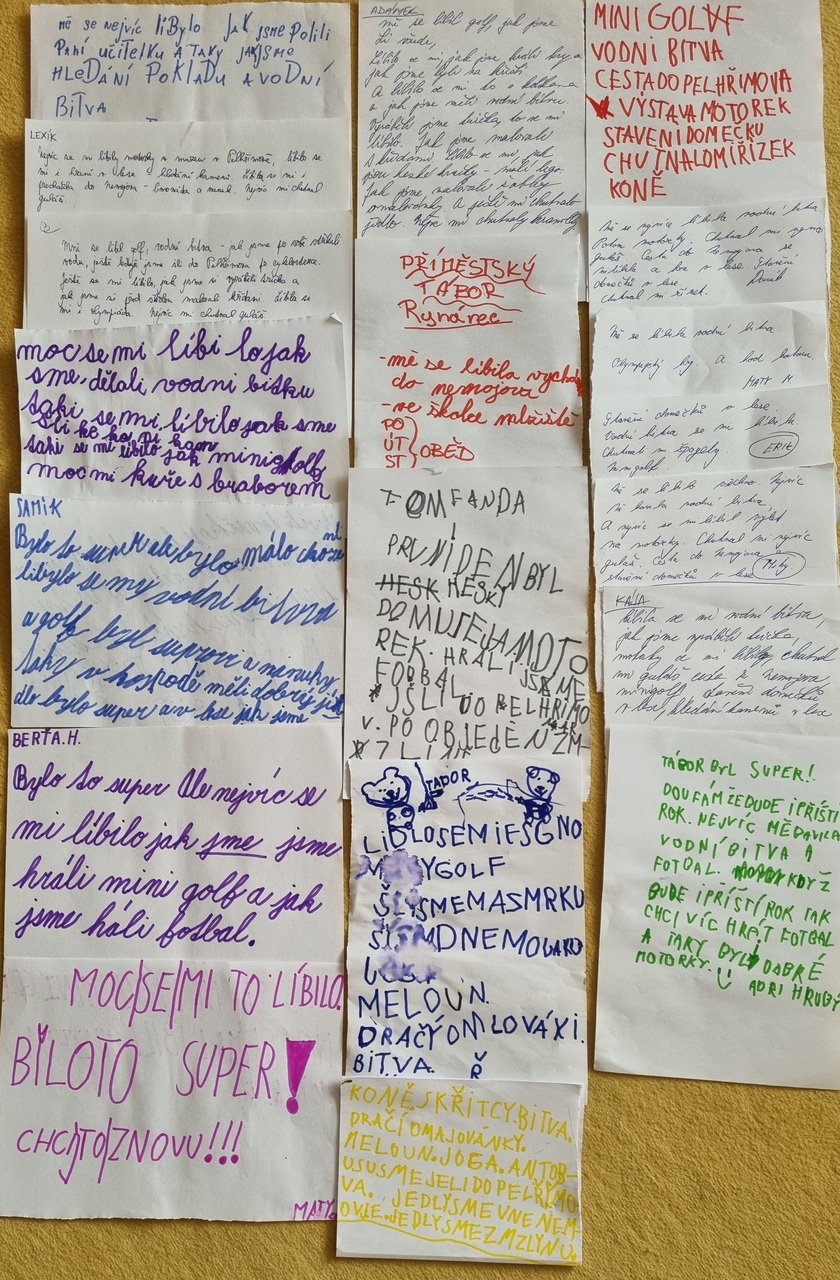 MĚ SE NEJVÍC líBYlO JAK JSME POlILI
PANÍ UČITELKU A TAKY JAKJSME
HLEDÁNÍ POKLADU A VODNÍ
BITVA
LEXÍK
Nejvíc se mi líbily motorky v muzeu v Pelhřimově, líbilo se
mi i hraní v lese a hledání kamenů. Líbila se mi i
procházka do Nemojova - Nejvíc mi chutnal
guláš.
Mně se líbil golf, vodní bitva - jak jsme po sobě stříkali
vodu, ještě když jsme šli do Pelhřimova po cyklostezce.
Ještě se mi líbilo, jak jsme si vyráběli trička a
jak jsme si před školou malovali křídami. Líbila se
mi i olympiáda. Nejvíc mi chutnal guláš.
moc se mi líbi lo jak
sme, dělali vodni bitku
taki se mi líbilo jak sme
šli ke ko ni kam
taki se mi líbilo jak minigolf
moc mi kuře s braborem
SAMÍK
Bylo to super ale bylo málo chození
libylo se my vodní bitva
a golf byl suprovi a nanuky
taky v hospodě měli dobrý jídlo
dlo bylo super a v lese jak jsme
BERŤA.H.
Bylo to super Ale nejvíc se
mi líbilo jak jsme jsme
hráli mini golf a jak
jsme háli fotbal.
MOC|SE|MI TO LÍBILO.
BĬLOTO SUPER!
CHCI|TO|ZNOVU!!!
MATY.
ADAMEK
mě se líbil golf, jak jsme
šli všude,
líbilo se mi, jak jsme hráli hry a
jak jsme byli na hřišti.
A líbilo se mi to s
a jak jsme měli vodní bitvu.
Vyráběli jsme trička to se mi
líbilo. Jak jsme malovali
s křídami. Líbilo se mi, jak
jsou hezké hračky - malý lego.
Jak jsme malovali
omalovánky. A ještě mi chutnalo
jídlo. Nejvíc mi chutnaly brambory
PŘÍMĚSTSKÝ
TÁBOR
Rynárec
-mě se líbila vycházka
do nemojova
-ve školce mlžiště
PO
ÚT
ST } OBĚD
TOMFANDA
PRVNÍ DEN BYL
HESK HESKÝ
DO MUSEJAMOTO
REK. HRÁLI JSME
FODBAL
JŠLI DO PELHŘIMO
V. PO OBJEDĚ
TADOR
LÍDLOSEMIFSGNO
YGOLF
ŠLISMEMASMRKU
DNEMO
MELOUN.
DRAČÝOMLOVÁXI.
BITVA. Ř
KONĚ.SKŘÍTCY.BITVA.
DRAČÍ OMAJOVÁNKY.
MELOUN.JOGA. ANTOB-
USUSMEJELI DO PELŘÝMO
VA. JEDLYSMEVNENEM-
OVIĚ. JEDLYSMEZMZLYNU.
MINIGOLXF
VODNI BITVA
CESTADOPELHŘIMOVA
VÝSTAVA MOTOREK
STAVENÍDOMEČKU
CHUTNALOMIŘIZEK
KONĚ
Mě se nejvíce líbila vodní bitva.
Potom motorky. Chutnal mi
guláš. Cesta do Nemojova se
mi líbila a hra v lese. Stavění
domečků v lese. Domík
Chutnal mi řízek.
Mě se líbila vodní bitva
Olympijský hry. A
MATY M
Stavění domečků v lese.
Vodní bitva se mi líbila.
Chutnali mi špagety. ERIK
Minigolf.
Mě se líbilo všechno. Nejvíc
mi bavila vodní bitva,
A nejvíc se mi líbil výlet
na motorky. Chutnal mi nejvíc
guláš. Cesta do Nemojova a
stavění domečků v lese.
KÁJA
Líbila se mi vodní bitva,
jak jsme vyráběli trička,
motorky se mi líbily, chutnal
mi guláš cesta k Nemojovu,
minigolf, stavění domečků
v lese, hledání kamenů v lese
TÁBOR BYL SUPER!
DOUFÁMŽEDUDE IPŘÍŠTI
ROK. NEJVÍC MĚ BAVILA
VODNÍ BITVA A
FOTBAL. KDYŽ
BUDE IPŘÍŠTÍ ROK TAK
CHCI VÍC HRÁT FOTBAL
A TAKY BYLI DOBRÉ
MOTORKY.
ADRI HRUBÝ